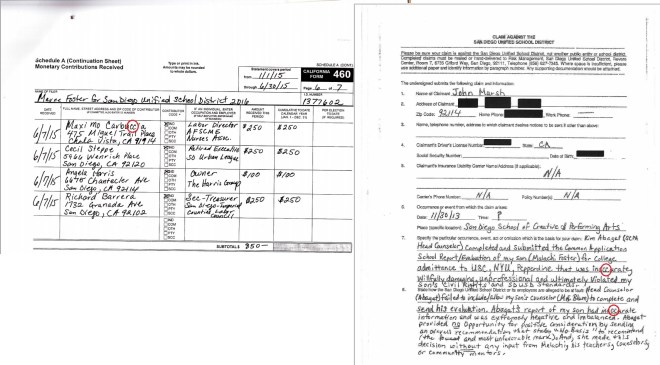 Schedule A (Continuation Sheet)
Monetary Contributions Received
Type or print in ink.
Amounts may be rounded
to whole dollars.
SCHEDULE A (CONT.)
Statement covers period
from 1/1/15
through 6/30/15
CALIFORNIA
FORM 460
Page 6 of 7
NAME OF FILER
Marne Foster for San Diego Unified School District 2016
I.D. NUMBER
1377602
DATE
RECEIVED
FULL STREET ADDRESS AND ZIP CODE OF CONTRIBUTOR
CONTRIBUTOR
CODE
IF AN INDIVIDUAL, ENTER
OCCUPATION AND EMPLOYER
AMOUNT
RECEIVED THIS
PERIOD
CUMULATIVE TO DATE
CALENDAR YEAR
(JAN. 1 - DEC. 31)
PER ELECTION
TO DATE
(IF REQUIRED)
6/7/15
Maxi mo Carbuccia
475 Miguel Trail Place
Chula Vista, CA 91914
IND
COM
OTH
PTY
SCC
Labor Director
AFSCME
Nurses Assc.
$250
$250
6/7/15
Cecil Steppe
5466 Wenrich Place
San Diego, CA 92120
IND
COM
OTH
PTY
SCC
Retired Executive
SD Urban League
$250
$250
6/7/15
Angela Harris
6695 Chantecler Ave
San Diego, CA 92114
IND
COM
OTH
PTY
SCC
Owner
The Harris Group
$100
$100
6/7/15
Richard Barrera
1732 Granada Ave
San Diego, CA 92102
IND
COM
OTH
PTY
SCC
Sec-Treasurer
San Diego-Imperial
Counties Labor
Council
$250
$250
SUBTOTAL $ 850—
CLAIM AGAINST THE
SAN DIEGO UNIFIED SCHOOL DISTRICT
Please be sure your claim is against the San Diego Unified School District, not another public entity or school district.
Completed claims must be mailed or hand-delivered to Risk Management, San Diego Unified School District, Revere
Center, Room 7, 6735 Gifford Way, San Diego, 92111, Telephone (858) 627-7345. Where space is insufficient, please
use additional paper and identify information by paragraph number. Any supporting documentation should be attached.
The undersigned submits the following claim and information:
1. Name of Claimant John Marsh
2. Address of Claimant
Zip Code: 92114 Home Phone Work Phone
3. Name, telephone number, address to which claimant desires notices to be sent if other than above:
4. Claimant's Driver's License Number State CA
Social Security Number Date of Birth
5. Claimant's Insurance Liability Carrier Name/Address (if applicable):
N/A
Carrier's Phone Number N/A Policy number(s) N/A
6. Occurrence or event from which the claim arises:
Date 11/30/13 Time: P
Place (specific location) San Diego School of Creative & Performing Arts
7. Specify the particular occurrence, event, act or omission which is the basis for your claim: Kim Abagat (SCPA
Head Counselor) Completed and Submitted the Common Application
School Report/Evaluation of my son (Malachi Foster) for College
admittance to USC, NYU, Pepperdine that was incorately
willfully damaging, unprofessional and ultimately Violated my
Son's Civil Rights and SDUSD Standards.
8. State how the San Diego Unified School District or its employees are alleged to be at fault: Head Counselor
(Abagat) failed to include/allow my son's Counselor (Ms. Blum) to complete and
send his evaluation. Abagat's report of my son had
information and was extremely negative and imbalanced. Abagat
provided no opportunity for positive consideration by sending
an overall recommendation that
and most unfavorable mark). And, she made this
decision without any input from Malachi, his teachers, counselors,
or community mentors.